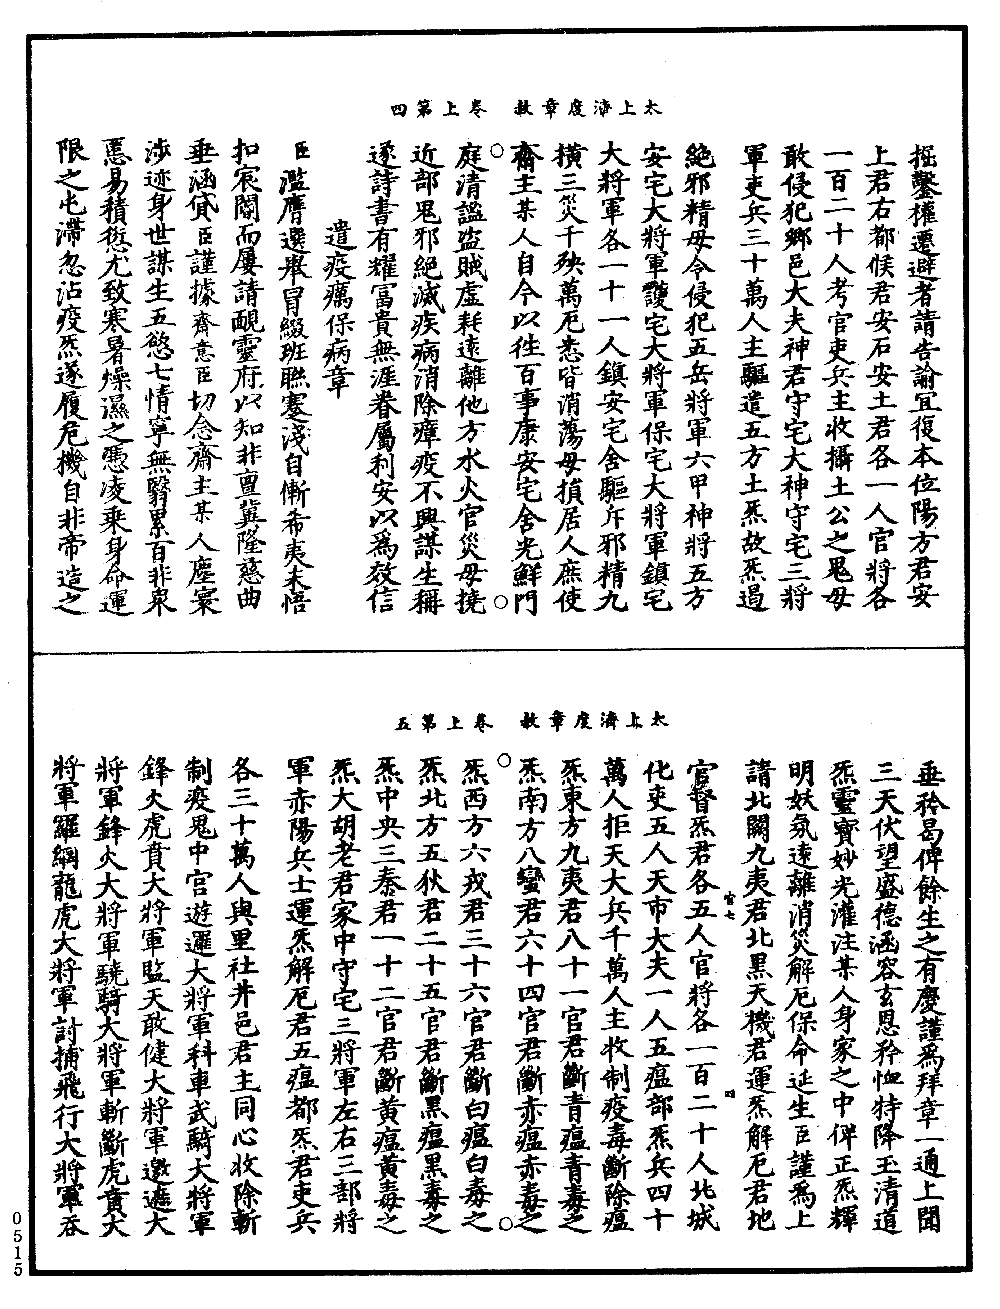 太上濟度章赦　卷上第四
掘鑿權遷避者請告諭宜復本位陽方君安
上君右都候君安石安土君各一人官將各
一百二十人考官吏兵主收攝土公之鬼毋
敢侵犯鄉邑大夫神君守宅大神守宅三將
軍吏兵三十萬人主驅遣五方土炁故炁過
絕邪精毋令侵犯五岳將軍六甲神將五方
安宅大將軍護宅大將軍保宅大將軍鎮宅
大將軍各一十一人鎮安宅舍驅斥邪精九
橫三災千殃萬厄悉皆消蕩毋損居人庶使
齋主某人自今以往百事康安宅舍光鮮門
庭清謐盜賊虛耗遠離他方水火官災毋撓
近部鬼邪絕滅疾病消除瘴疫不興謀生稱
遂詩書有耀富貴無涯眷屬利安以為效信
遣疫癘保病章
臣濫膺選舉冒綴班聯蹇淺自慚希夷未悟
扣宸閽而屢請覼靈府以知非亶冀隆慈曲
垂涵貸臣謹據齋意臣切念齋主某人塵寰
涉迹身世謀生五慾七情寧無翳累百非眾
惡易積愆尤致寒暑燥濕之憑凌乘身命運
限之屯滯忽沾疫炁遂履危機自非帝造之
太上濟度章赦　卷上第五
垂矜曷俾餘生之有慶謹為拜章一通上聞
三天伏望盛德涵容玄恩矜恤特降玉清道
炁靈寶妙光灌注某人身家之中俾正炁輝
明妖氛遠離消災解厄保命延生臣謹為上
請北闕九夷君北黑天機君運炁解厄君地
官督炁君各五人官將各一百二十人北城
化吏五人天市大夫一人五瘟部炁兵四十
萬人拒天大兵千萬人主收制疫毒斷除瘟
炁東方九夷君八十一官君斷青瘟青毒之
炁南方八蠻君六十四官君斷赤瘟赤毒之
炁西方六戎君三十六官君斷白瘟白毒之
炁北方五狄君二十五官君斷黑瘟黑毒之
炁中央三秦君一十二官君斷黃瘟黃毒之
炁大胡老君家中守宅三將軍左右三部將
軍赤陽兵士運炁解厄君五瘟都炁君吏兵
各三十萬人與里社井邑君主同心收除斬
制疫鬼中宮遊邏大將軍科車武騎大將軍
鋒火虎賁大將軍監天敢健大將軍邀遮大
將軍鋒火大將軍驍騎大將軍斬斷虎賁大
將軍羅網龍虎大將軍討捕飛行大將軍吞
官七
四
0515